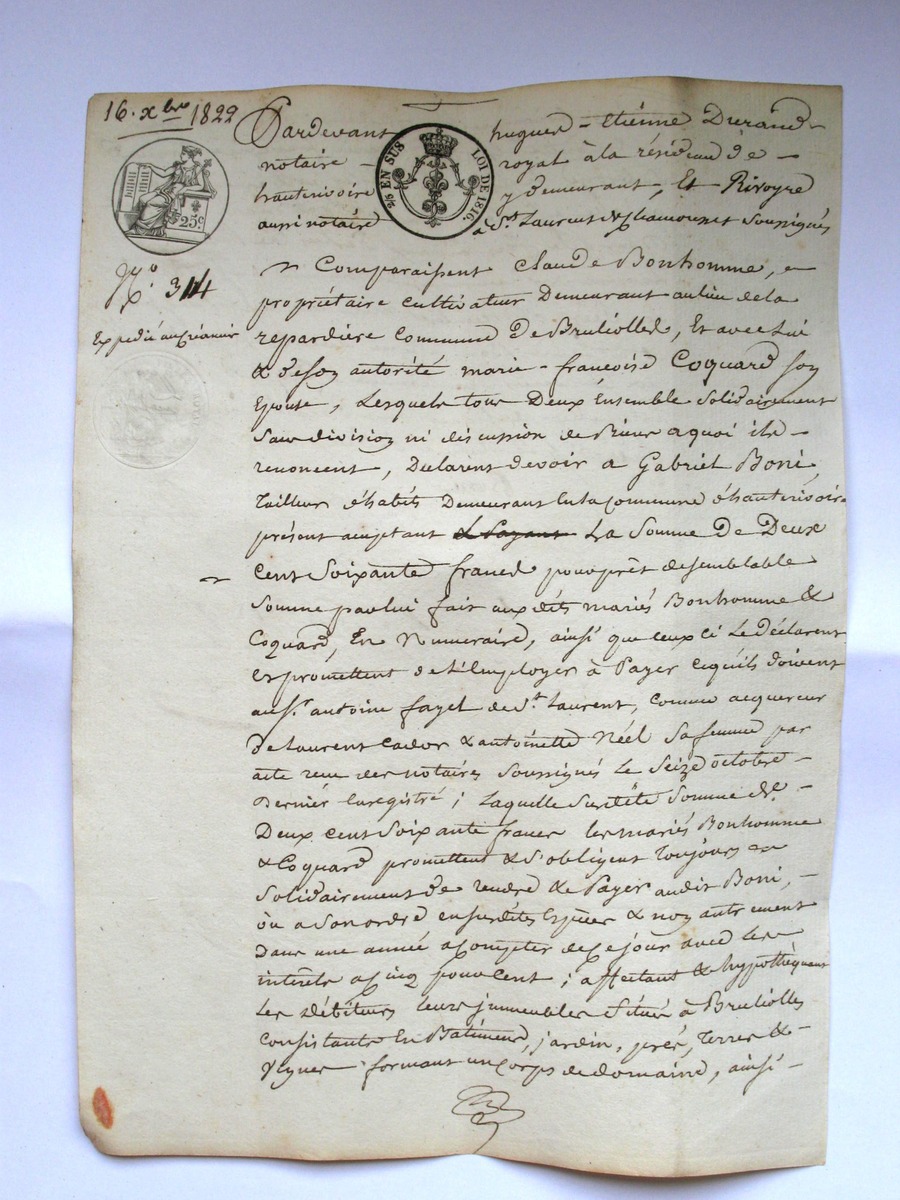 16. xbre 1822
Pardevant hugues - Etiénne Durand
notaire - royal à la résidence de -
hauterivoire y demeurant, Et Rivoyre
aussi notaire a St. Laurent de Chamousset Soussignés
25c.
% EN SUS LOI DE 1816.
No. 314
Expédié au Créancier
Comparaissent Claude Bonhomme,
propriétaire cultivateur Demeurant au lieu de la
repardière Commune De Brulioles, Et avec Lui
& de son autorité marie - françoise Coquard son
Epouse, Lesquels tous Deux Ensemble Solidairement
Sans division ni discussion de biens a quoi ils -
renoncent, Déclarent devoir a Gabriel Boni,
Tailleur d'habits Demeurant En la Commune d'hauterivoire
présent acceptant La Somme De Deux
Cent Soixante francs pour prêt de semblable
Somme par lui fait aux dits mariés Bonhomme &
Coquard, En Numeraire, ainsi que ceux ci Le Déclarent
Et promettent de l'Employer à Payer ce qu'ils doivent
au Sr. antoine fayet de St. Laurent, comme acquereur
De Laurent Cador & antoinette Néel Sa femme par
acte reçu des notaires Soussignés Le Seize octobre -
Dernier Enregistré ; Laquelle Susdite Somme de -
Deux cent Soixante francs les mariés Bonhomme
& Coquard promettent & S'obligent Toujours
Solidairement de rendre & Payer audit Boni, -
ou a Son ordre en susdites Espèces & non autrement
Dans une année a Compter de Ce jour avec les
intérêts a Cinq pour cent ; affectant & hypothéquant
Les Débiteurs leurs immeubles Situés à Brulioles
Consistants En Batiments, jardin, prés, Terres & -
Vignes formant un Corps de domaine, ainsi -